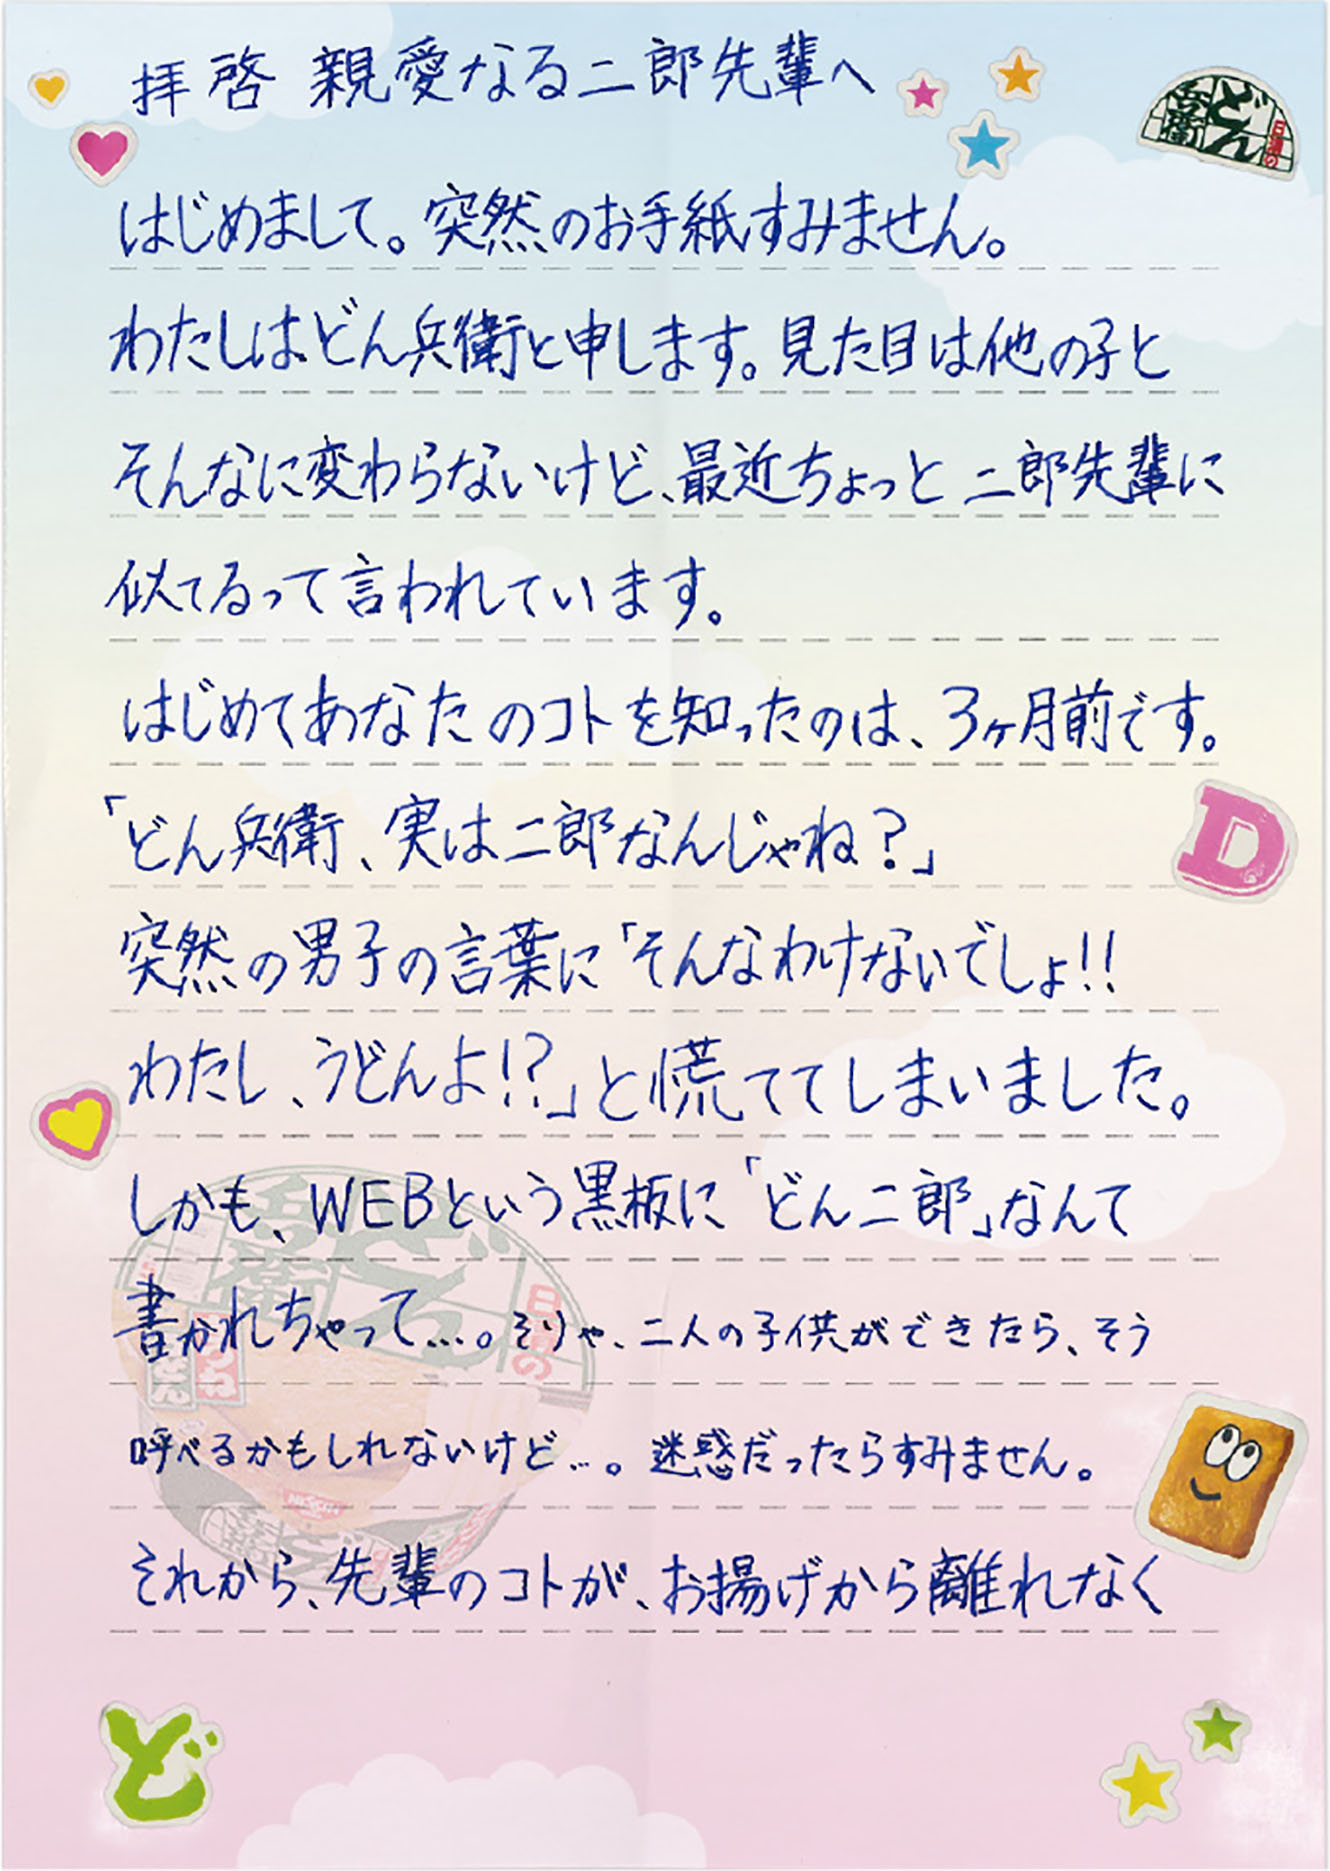 拝啓 親愛なる二郎先輩へ
日清の
どん
兵衛
はじめまして。突然のお手紙すみません。
わたしはどん兵衛と申します。見た目は他の子と
そんなに変わらないけど、最近ちょっと二郎先輩に
似てるって言われています。
はじめてあなたのコトを知ったのは、3ヶ月前です。
「どん兵衛、実は二郎なんじゃね?」
D
突然の男子の言葉に「そんなわけないでしょ!!
わたし、うどんよ!?」と慌ててしまいました。
しかも、WEBという黒板に「どん二郎」なんて
書かれちゃって…。そりゃ、二人の子供ができたら、そう
呼べるかもしれないけど…。迷惑だったらすみません。
それから、先輩のコトが、お揚げから離れなく
ど
日清の
どん
兵衛
NISSIN